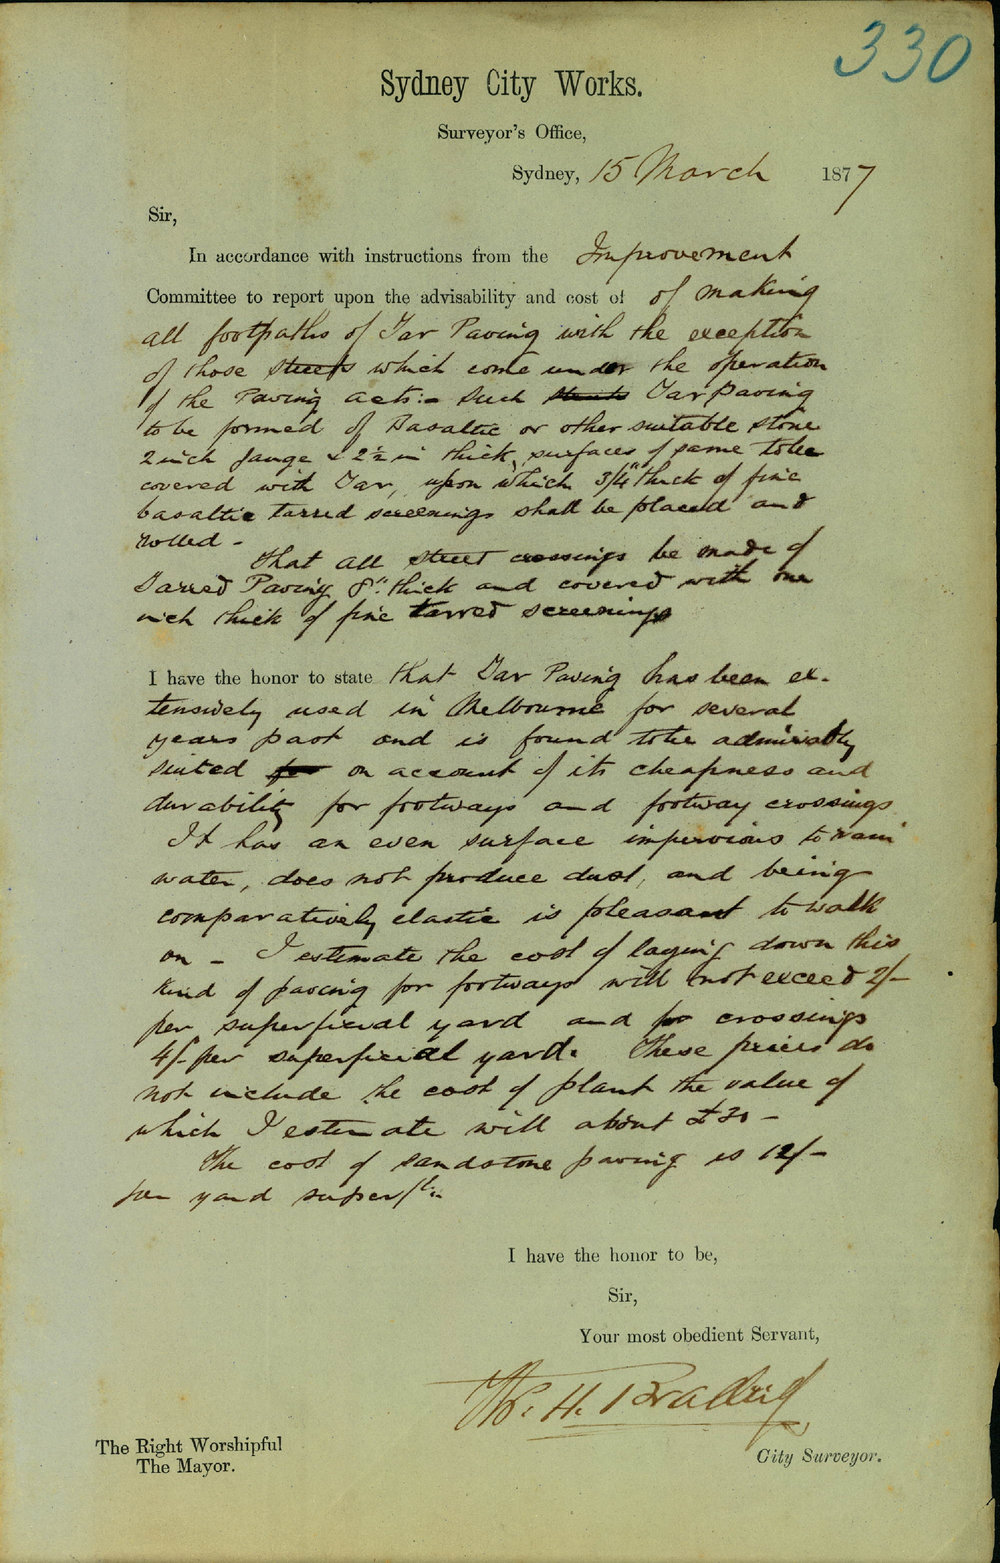 330
Sydney City Works.
Surveyor's Office,
Sydney, 15 March 1877
Sir,
In accordance with instructions from the Improvement
Committee to report upon the advisability and cost of of making
all footpaths of Tar Paving with the exception
of those streets which come under the operation
of the Paving Acts:- Such streets Tar paving
to be formed of Basaltic or other suitable stone
2 inch gauge & 2½ in thick, surfaces of same to be
covered with Tar, upon which 3/4" thick of fine
basaltic tarred screenings shall be placed and
rolled -
That all street crossings be made of
Tarred Paving 8" thick and covered with one
inch thick of fine tarred screenings
I have the honor to state that Tar Paving has been ex-
tensively used in Melbourne for several
years past and is found to be admirably
suited for on account of its cheapness and
durability for footways and footway crossings
It has an even surface impervious to rain
water, does not produce dust, and being
comparatively elastic is pleasant to walk
on - I estimate the cost of laying down this
kind of paving for footways will not exceed 2/-
per superficial yard and for crossings
4/- per superficial yard. These prices do
not include the cost of plant the value of
which I estimate will about £30 -
The cost of sandstone paving is 12/-
per yard superfl..
I have the honor to be,
Sir,
Your most obedient Servant,
H.
City Surveyor.
The Right Worshipful
The Mayor.